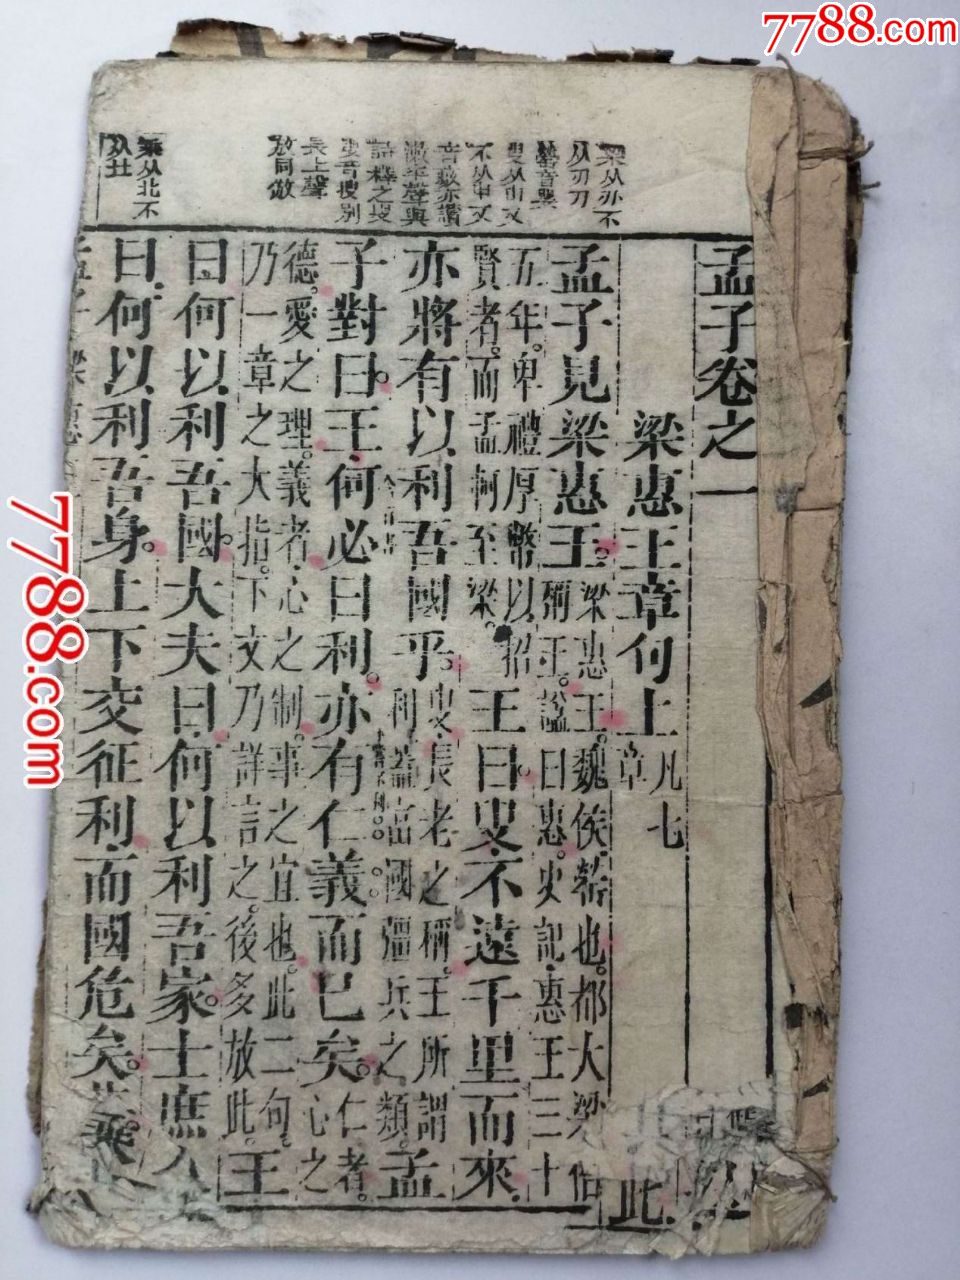 7788.com
7788.com
梁从刅不
从刃刀
罃音罌
叟从申又
不从申文
音數亦讀
漱平聲與
詩釋之叟
叟音搜別
長上聲
放同倣
乘从北不
从壯
孟子卷之一
梁惠王章句上
凡七
章
孟子見梁惠王。
梁惠王。魏侯罃也。都大梁
彌王。謚曰惠。史記。惠王三十
五年。卑禮厚幣以招
賢者。而孟軻至梁。
王曰。叟不遠千里而來。
亦將有以利吾國乎。
叟。長老之稱。王所謂
利。蓋富國彊兵之類。
孟
子對曰。王。何必曰利。亦有仁義而已矣。
仁者。
心之
德。愛之理。義者。心之制。事之宜也。此二句。
乃一章之大指。下文乃詳言之。後多放此。
王
曰何以利吾國大夫曰。何以利吾家。士庶人
曰。何以利吾身。上下交征利。而國危矣。